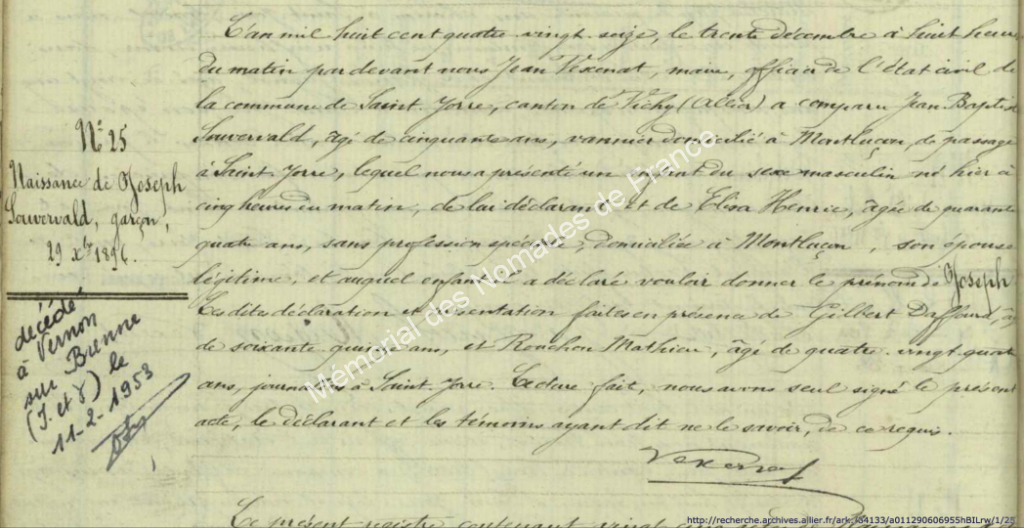 N° 25
Naissance de Joseph
Souvervald, garçon,
29 Xbre 1896.
décédé
à Vernon
sur Brenne
(I. et V) le
11-2-1953
L'an mil huit cent quatre vingt seize, le trente décembre à huit heures
du matin par devant nous Jean Vexenat, maire, officier de l'état civil de
la commune de Saint Yorre, canton de Vichy (Allier) a comparu Jean Baptiste
Souvervald, âgé de cinquante ans, vannier domicilié à Montluçon, de passage
à Saint Yorre, lequel nous a présenté un enfant du sexe masculin né hier à
cinq heures du matin, de lui déclarant et de Elisa Henric, âgée de quarante
quatre ans, sans profession spéciale, domiciliée à Montluçon, son épouse
légitime, et auquel enfant il a déclaré vouloir donner le prénom de Joseph
Ces dites déclaration et présentation faites en présence de Gilbert
de soixante quinze ans, et Rouchon Mathieu, âgé de quatre vingt quatre
ans, journaliers à Saint Yorre. Lecture fait, nous avons seul signé le présent
acte, le déclarant et les témoins ayant dit ne le savoir, de ce requis.
Vexenat
Ce présent registre contenant vingt
Mémorial des Nomades de France